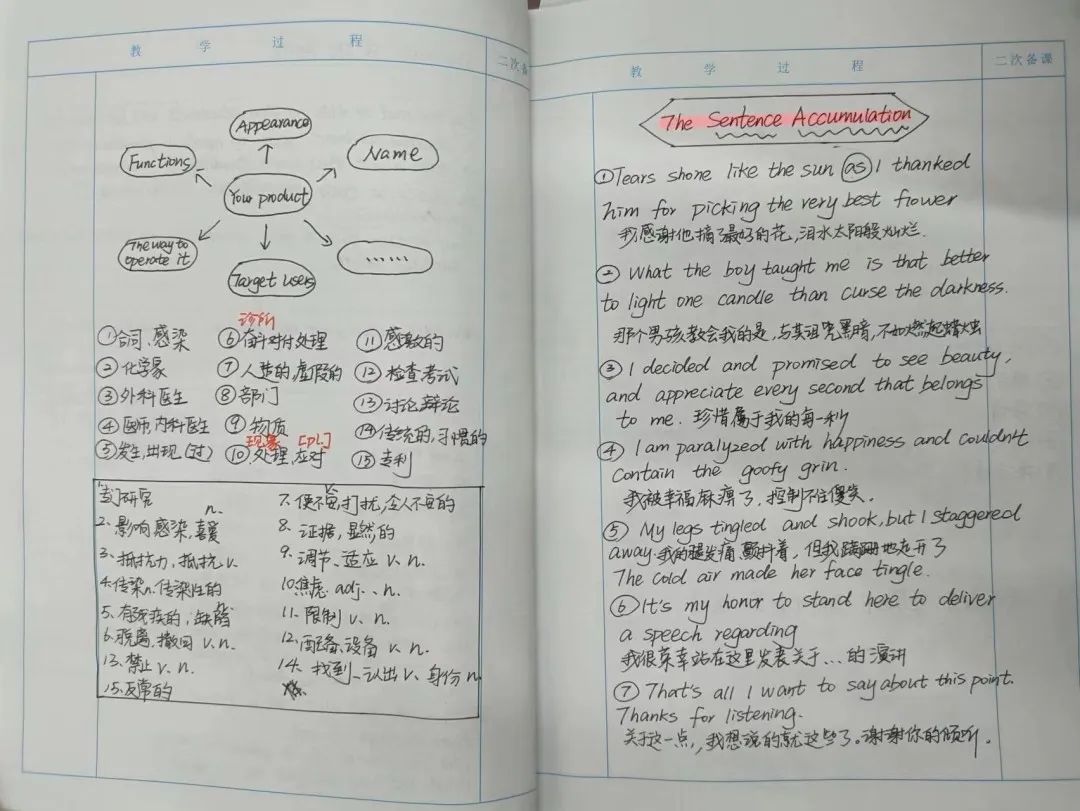 教 学 过 程
二次备
Appearance
Functions
Name
Your product
The way to
operate it
Target users
……
诊所
①合同、感染
⑥奋斗对付处理
⑪感激的
②化学家
⑦人造的,虚假的
⑫检查考试
③外科医生
⑧部门
⑬讨论,辩论
④医师,内科医生
⑨物质
⑭传统的,习惯的
现象 [pl.]
⑤发生,出现,(过)
⑩处理,应对
⑮专利
研究 n.
7. 打扰,令人不安的
2. 影响感染,喜爱
8. 证据,显然的
3. 抵抗力,抵抗v.
9. 调节、适应 v. n.
4.传染n.传染性的
10.焦虑. adj. n.
5. 有残疾的,缺陷
11. 限制 v. n.
6.脱离,撤回 v. n.
12. 配备,设备 v. n.
13. 禁止 v. n.
14. 找到、认出 v. 身份 n.
15.反常的
教 学 过 程
二次备课
The Sentence Accumulation
①Tears shone like the sun as I thanked
him for picking the very best flower
我感谢他摘了最好的花,泪水太阳般灿烂.
② What the boy taught me is that better
to light one candle than curse the darkness.
那个男孩教会我的是,与其诅咒黑暗,不如燃起蜡烛
③ I decided and promised to see beauty,
and appreciate every second that belongs
to me. 珍惜属于我的每一秒
④ I am paralyzed with happiness and couldn't
contain the goofy grin.
我被幸福麻痹了,控制不住傻笑.
⑤ My legs tingled and shook, but I staggered
away.我的腿发痛颤抖着,但我蹒跚地走开了
The cold air made her face tingle.
⑥ It's my honor to stand here to deliver
a speech regarding
我很荣幸站在这里发表关于...的演讲
⑦ That's all I want to say about this point.
Thanks for listening.
关于这一点,我想说的就这些了。谢谢你的倾听.